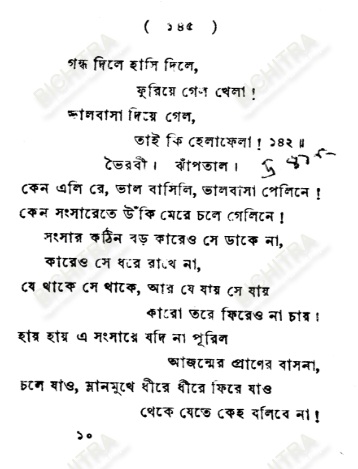 ( ১৪৫ )
গন্ধ দিলে হাসি দিলে,
ফুরিয়ে গেল খেলা !
ভালবাসা দিয়ে গেল,
তাই কি হেলাফেলা ! ১৪২ ॥
ভৈরবী । ঝাঁপতাল ।
কেন এলি রে, ভাল বাসিলি, ভালবাসা পেলিনে !
কেন সংসারেতে উঁকি মেরে চলে গেলিনে !
সংসার কঠিন বড় কারেও সে ডাকে না,
কারেও সে ধরে রাখে না,
যে থাকে সে থাকে, আর যে যায় সে যায়
কারো তরে ফিরেও না চায় !
হায় হায় এ সংসারে যদি না পূরিল
আজন্মের প্রাণের বাসনা,
চলে যাও, ম্লানমুখে ধীরে ধীরে ফিরে যাও
থেকে যেতে কেহ বলিবে না !
১০